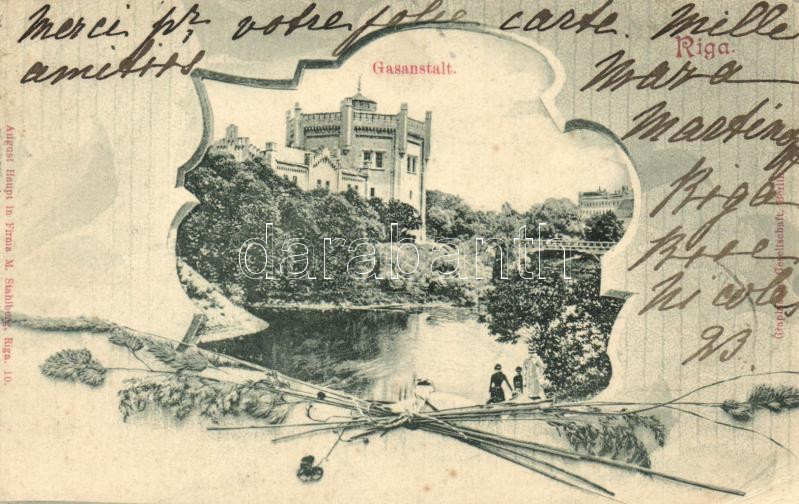 Merci pr votre jolie carte. Mille
amitiés
Riga.
Gasanstalt.
Mara
Martin
Riga
Rue
Nicolas
23.
August Haupt in Firma M. Stahlberg, Riga. 10.
Gesellschaft, Berlin
darabanth